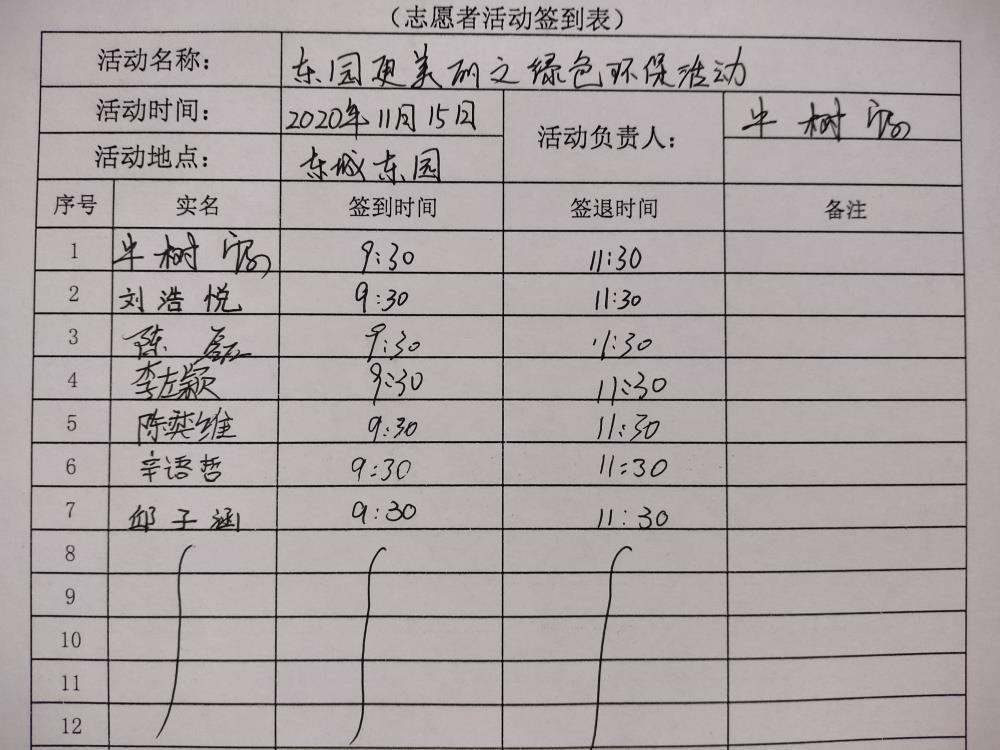 （志愿者活动签到表）
活动名称： 东园更美丽之绿色环保活动
活动时间： 2020年11月15日 活动负责人： 牛树
活动地点： 东城东园
序号 实名 签到时间 签退时间 备注
1 牛树 9:30 11:30
2 刘浩悦 9:30 11:30
3 陈磊 9:30 11:30
4 李左颖 9:30 11:30
5 陈奕维 9:30 11:30
6 辛语哲 9:30 11:30
7 邱子涵 9:30 11:30
8
9
10
11
12